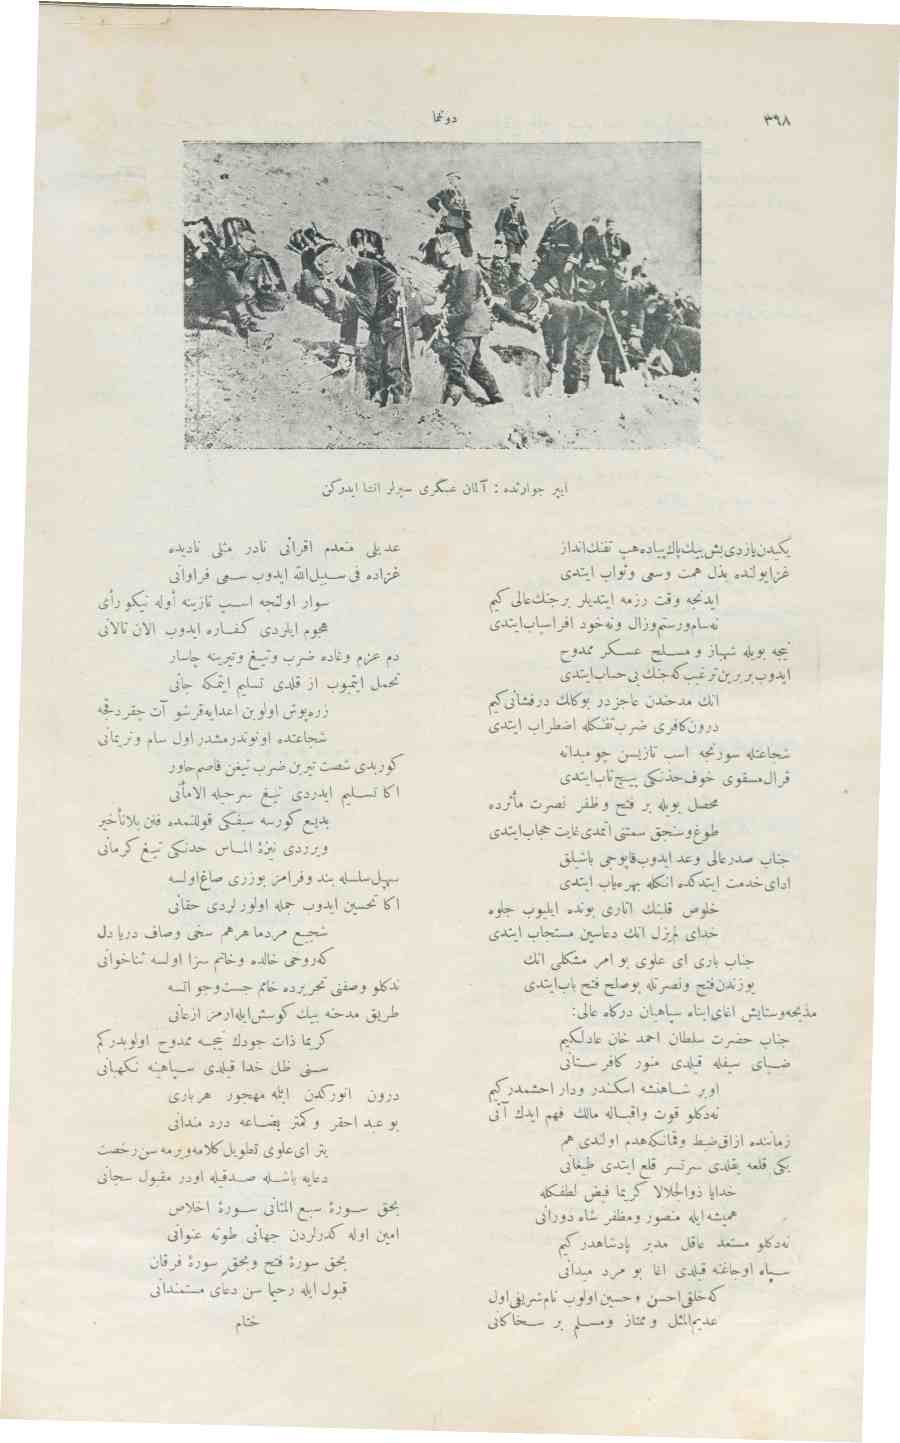 ٣٩٨
دوننما
ایپر جوارنده : آلمان عسکری سیرلر انشا ایدرکن
یکیدن یازدی بش بیك پاك پیاده هپ تفنك انداز
غزا یولنده بذل همت وسعی وثواب ایتدی
ایدنجه وقت رزمه ایتدیلر بر جنك عالی کیم
نه سام ورستم وزال ونه خود افراسیاب ایتدی
نیجه بویله شهباز و مسلح عسکر ممدوح
ایدوب بر برین ترغیب که جنك بی حساب ایتدی
انك مدحندن عاجزدر بو کلك درفشانی کیم
درون کافری ضرب تفنکله اضطراب ایتدی
شجاعتله سورنجه اسب تازیسن چو میدانه
قرال مسقوی خوف خدنکی پیچ تاب ایتدی
محصل بویله بر فتح وظفر نصرت مأثرده
طوغ وسنجق سمتنی اتمدی غایت حجاب ایتدی
جناب صدر عالی وعد ایدوب قاپوجی باشیلق
ادای خدمت ایتدکده انکله بهره یاب ایتدی
خلوص قلبنك اثاری بونده ایلیوب جلوه
خدای لم یزل انك دعاسین مستجاب ایتدی
جناب باری ای علوی بو امر مشکلی انك
یوزندن فتح ونصرتله بو صلح فتح باب ایتدی
مدیحه وستایش اغای ابناء سپاهیان درکاه عالی:
جناب حضرت سلطان احمد خان عادل کیم
ضیای سیفله قیلدی منور کافرستانی
اویر شاهنشه اسکندر ودارا حشمدر کیم
نه دکلو قوت واقباله مالك فهم ایدك آنی
زماننده ازاق ضبط وقمانکه هدم اولندی هم
یکی قلعه یقلدی سرتسر قلع ایتدی طبغانی
خدایا ذوالجلالا کریما فیض لطفکله
همیشه ایله منصور ومظفر شاه دورانی
نه دکلو مستعد عاقل مدبر پادشاهدر کیم
سپاه اوجاغنه قیلدی اغا بو مرد میدانی
که خلقی احسن وحسین اولوب نام شریفی اول
عدیم المثل وممتاز ومسلم بر سخا کانی
عدیلی منعدم اقرانی نادر مثلی نادیده
غزاده فی سبیل الله ایدوب سعی فراوانی
سوار اولنجه اسب تازینه اوله نیکو رأی
هجوم ایلردی کفاره ایدوب الان تالانی
دم عزم وغاده ضرب وتیغ وتیرینه چاسار
تحمل ایتمیوب از قلدی تسلیم ایتمکه جانی
زره پوش اولوبن اعدایه قرشو آت چقردقجه
شجاعتده اونوندرمشدر اول سام ونریمانی
کوریدی شصت تیرین ضرب تیغن قاصم خاور
اکا تسلیم ایدردی تیغ سرحیله الامانی
بدیع کورسه سیفکی قوللنمده فنن بلا تأخیر
ویرردی نیزهٔ الماس خدنکی تیغ کرمانی
سهیل سلسله بند وفرامز بوزری صاغ اولسه
اکا تحسین ایدوب جمله اولورلردی حقانی
شجیع مردما هرهم سخی وصاف دریا دل
که روحی خالده وخاتم سزا اولسه ثناخوانی
ندکلو وصفنی تحریرده خاتم جست وجو اتسه
طریق مدحنه بیك کوشش ایله ارمز ازعانی
کریما ذات جودك نیجه ممدوح اولویدر کم
سنی ظل خدا قیلدی سپاهینه نکهبانی
درون انورکدن ایله مهجور هر باری
بو عبد احقر وکمتر بضاعه درد مندانی
یتر ای علوی تطویل کلامه ویرمه سن رخصت
دعایه باشله صدقیله اودر مقبول سجانی
بحق سورهٔ سبع المثانی سورهٔ اخلاص
امین اوله کدرلردن جهانی طوته عنوانی
بحق سورهٔ فتح وبحق سورهٔ فرقان
قبول ایله رحیما سن دعای مستمندانی
ختام